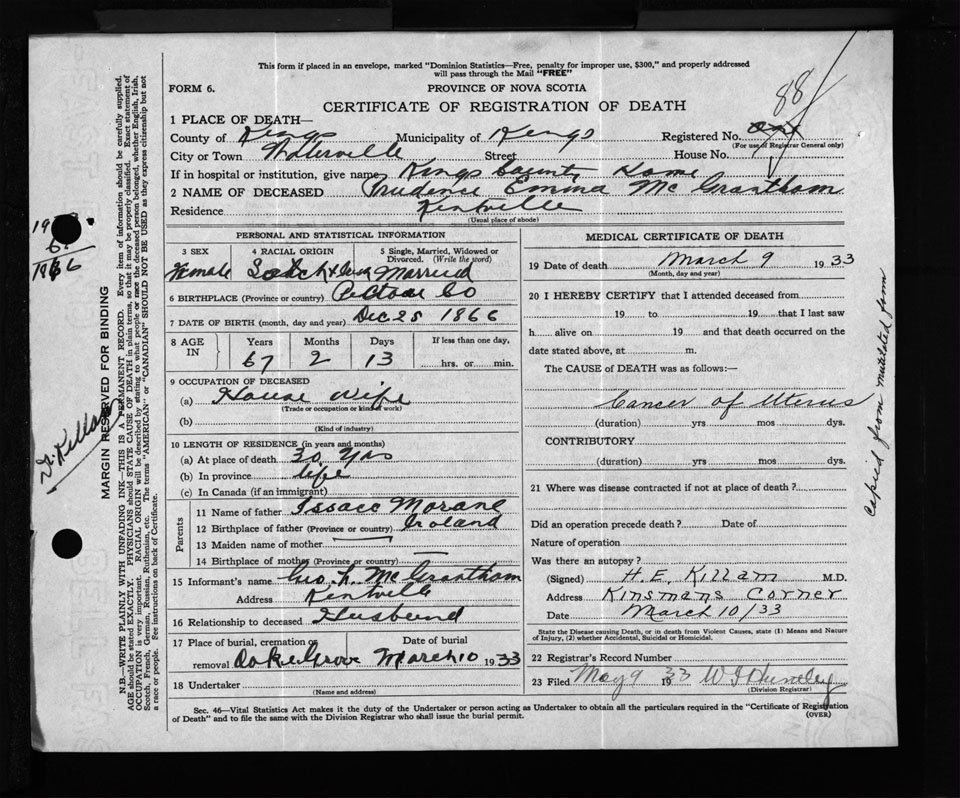 This form if placed in an envelope, marked "Dominion Statistics—Free, penalty for improper use, $300," and properly addressed
will pass through the Mail "FREE"
FORM 6.
PROVINCE OF NOVA SCOTIA
88
CERTIFICATE OF REGISTRATION OF DEATH
1 PLACE OF DEATH—
County of Kings Municipality of Kings Registered No.
(For use of Registrar General only)
City or Town Waterville Street House No.
If in hospital or institution, give name Kings County Home
2 NAME OF DECEASED Prudence Emma McGrantham
Residence Kentville
(Usual place of abode)
PERSONAL AND STATISTICAL INFORMATION
3 SEX 4 RACIAL ORIGIN 5 Single, Married, Widowed or
Divorced. (Write the word)
Female Married
6 BIRTHPLACE (Province or country) Pictou Co
7 DATE OF BIRTH (month, day and year) Dec 25 1866
8 AGE IN Years Months Days If less than one day,
67 2 13 hrs. or min.
9 OCCUPATION OF DECEASED
(a) House wife
(Trade or occupation or kind of work)
(b)
(Kind of industry)
10 LENGTH OF RESIDENCE (in years and months)
(a) At place of death 30 yrs
(b) In province life
(c) In Canada (if an immigrant)
Parents
11 Name of father Issacc Morane
12 Birthplace of father (Province or country) Ireland
13 Maiden name of mother —
14 Birthplace of mother (Province or country) —
15 Informant's name Geo. L. McGrantham
Address Kentville
16 Relationship to deceased Husband
17 Place of burial, cremation or Date of burial
removal Oak Grove March 10 1933
18 Undertaker
(Name and address)
MEDICAL CERTIFICATE OF DEATH
19 Date of death March 9 1933
(Month, day and year)
20 I HEREBY CERTIFY that I attended deceased from
19 to 19 that I last saw
h alive on 19 and that death occurred on the
date stated above, at m.
The CAUSE of DEATH was as follows:—
Cancer of Uterus
(duration) yrs mos dys.
CONTRIBUTORY
(duration) yrs mos dys.
21 Where was disease contracted if not at place of death?
Did an operation precede death? Date of
Nature of operation
Was there an autopsy?
(Signed) H.E. Killam M.D.
Address Kinsmans Corner
Date March 10/33
State the Disease causing Death, or in death from Violent Causes, state (1) Means and Nature
of Injury, (2) whether Accidental, Suicidal or Homicidal.
22 Registrar's Record Number
23 Filed May 9 1933 W J Huntley
(Division Registrar)
Sec. 46—Vital Statistics Act makes it the duty of the Undertaker or person acting as Undertaker to obtain all the particulars required in the "Certificate of Registration
of Death" and to file the same with the Division Registrar who shall issue the burial permit.
(OVER)
Copied from mutilated form
67
1866
Dr. Killam
MARGIN RESERVED FOR BINDING
N.B.—WRITE PLAINLY WITH UNFADING INK—THIS IS A PERMANENT RECORD. Every item of information should be carefully supplied.
AGE should be stated EXACTLY. PHYSICIANS should STATE CAUSE OF DEATH in plain terms, so that it may be properly classified. Exact statement of
OCCUPATION is very important. RACIAL ORIGIN will be described by stating to what people or race the deceased person belonged, whether English, Irish,
Scotch, French, German, Russian, Ruthenian, etc. The terms "AMERICAN" or "CANADIAN" SHOULD NOT BE USED as they express citizenship but not
a race or people. See instructions on back of Certificate.